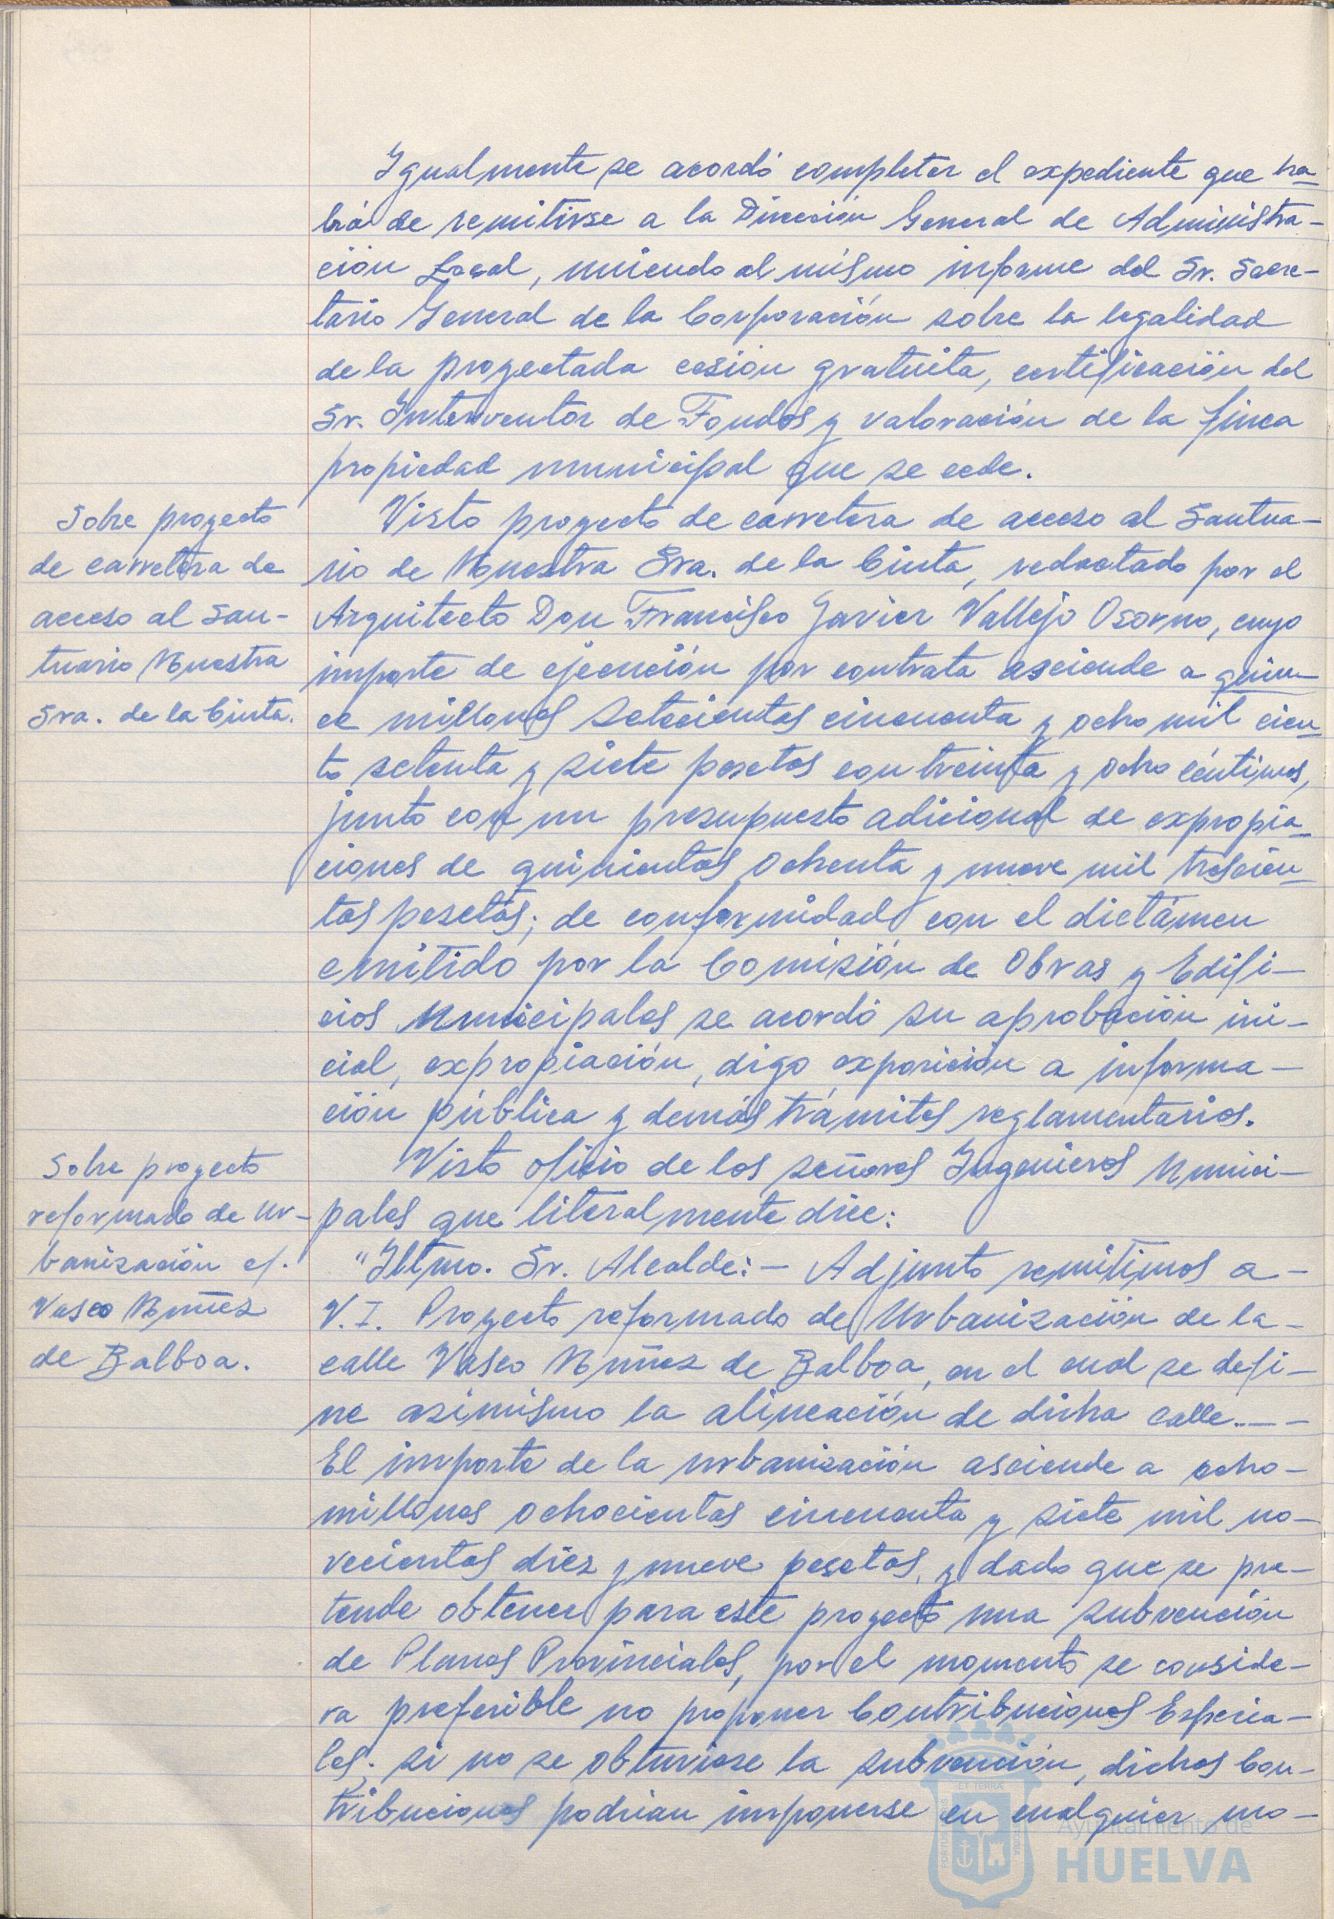 Igualmente se acordó completar el expediente que ha-
brá de remitirse a la Dirección General de Administra-
ción Local, uniendo al mismo informe del Sr. Secre-
tario General de la Corporación sobre la legalidad
de la proyectada cesión gratuita, certificación del
Sr. Interventor de Fondos y valoración de la finca
propiedad municipal que se cede.
Sobre proyecto
de carretera de
acceso al San-
tuario Nuestra
Sra. de la Cinta.
Visto proyecto de carretera de acceso al Santua-
rio de Nuestra Sra. de la Cinta, redactado por el
Arquitecto Don Francisco Javier Vallejo Osorno, cuyo
importe de ejecución por contrata asciende a quin-
ce millones setecientas cincuenta y ocho mil cien-
to setenta y siete pesetas con treinta y ocho céntimos,
junto con un presupuesto adicional de expropia-
ciones de quinientas ochenta y nueve mil trescien-
tas pesetas; de conformidad con el dictámen
emitido por la Comisión de Obras y Edifi-
cios Municipales se acordó su aprobación ini-
cial, expropiación, digo exposición a informa-
ción pública y demás trámites reglamentarios.
Sobre proyecto
reformado de Ur-
banización c/.
Vasco Nuñez
de Balboa.
Visto oficio de los señores Ingenieros Munici-
pales que literalmente dice:
"Iltmo. Sr. Alcalde:- Adjunto remitimos a-
V.I. Proyecto reformado de Urbanización de la-
calle Vasco Nuñez de Balboa, en el cual se defi-
ne asimismo la alineación de dicha calle.--
El importe de la urbanización asciende a ocho-
millones ochocientas cincuenta y siete mil no-
vecientas diez y nueve pesetas, y dado que se pre-
tende obtener para este proyecto una subvención
de Planes Provinciales, por el momento se conside-
ra preferible no proponer Contribuciones Especia-
les. si no se obtuviese la subvención, dichas Con-
tribuciones podrian imponerse en cualquier mo-
ET TERRA
Ayuntamiento de
HUELVA